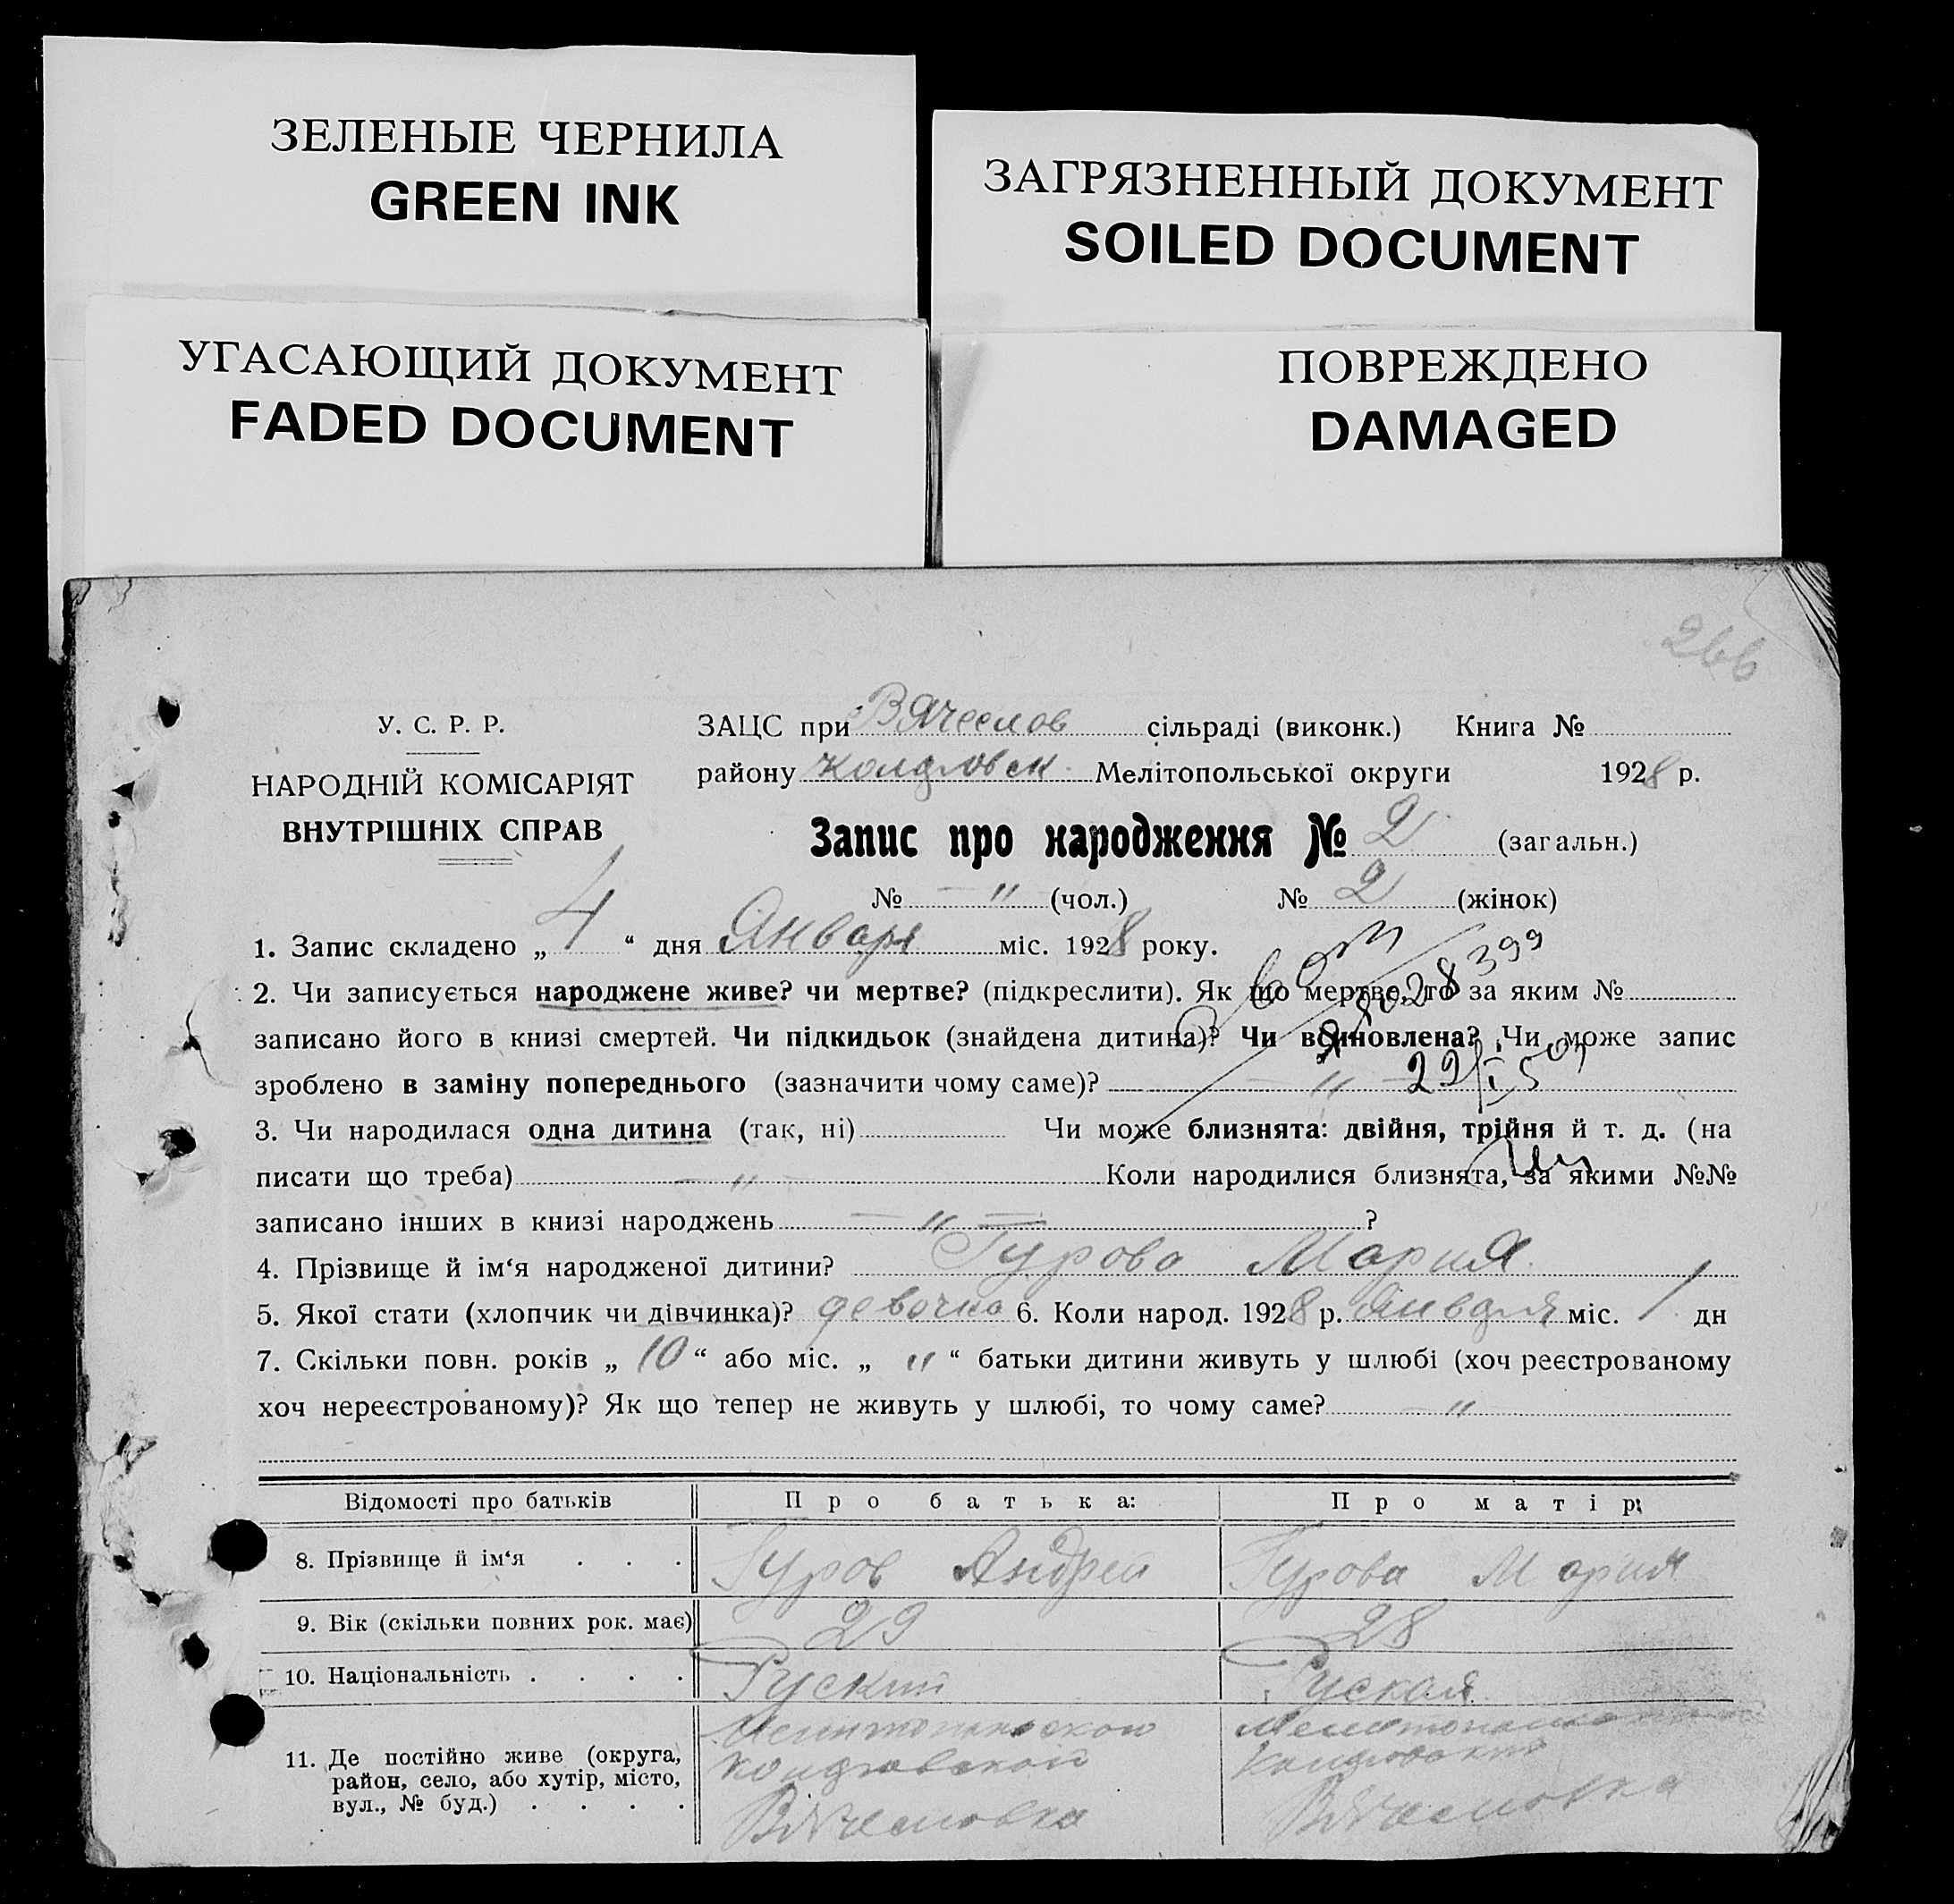 ЗЕЛЕНЫЕ ЧЕРНИЛА
GREEN INK
ЗАГРЯЗНЕННЫЙ ДОКУМЕНТ
SOILED DOCUMENT
УГАСАЮЩИЙ ДОКУМЕНТ
FADED DOCUMENT
ПОВРЕЖДЕНО
DAMAGED
266
У. С. Р. Р.
НАРОДНІЙ КОМІСАРІЯТ
ВНУТРІШНІХ СПРАВ
ЗАЦС при Вячеслов сільраді (виконк.) Книга №
району Мелітопольської округи 1928 р.
Запис про народження № 2 (загальн.)
№ — " (чол.) № 2 (жінок)
1. Запис складено „ 4 “ дня Января міс. 1928 року.
2. Чи записується народжене живе? чи мертве? (підкреслити). Як що мертве, то за яким №
записано його в книзі смертей. Чи підкидьок (знайдена дитина)? Чи відновлена? Чи може запис
зроблено в заміну попереднього (зазначити чому саме)? — " —
3. Чи народилася одна дитина (так, ні) Чи може близнята: двійня, трійня й т. д. (на
писати що треба) — " — Коли народилися близнята, за якими №№
записано інших в книзі народжень — " — ?
4. Прізвище й ім‘я народженої дитини? Гурова Мария
5. Якої стати (хлопчик чи дівчинка)? девочка 6. Коли народ. 1928 р. Января міс. 1 дн
7. Скільки повн. років „ 10 “ або міс. „ " “ батьки дитини живуть у шлюбі (хоч реєстрованому
хоч нереєстрованому)? Як що тепер не живуть у шлюбі, то чому саме? — " —
Відомості про батьків Про батька: Про матір:
8. Прізвище й ім‘я . . . Гуров Андрей Гурова Мария
9. Вік (скільки повних рок. має) 29 28
10. Національність . . . . Руский Руская
11. Де постійно живе (округа,
район, село, або хутір, місто,
вул., № буд.) . . . .
Вячесловка Вячесловка